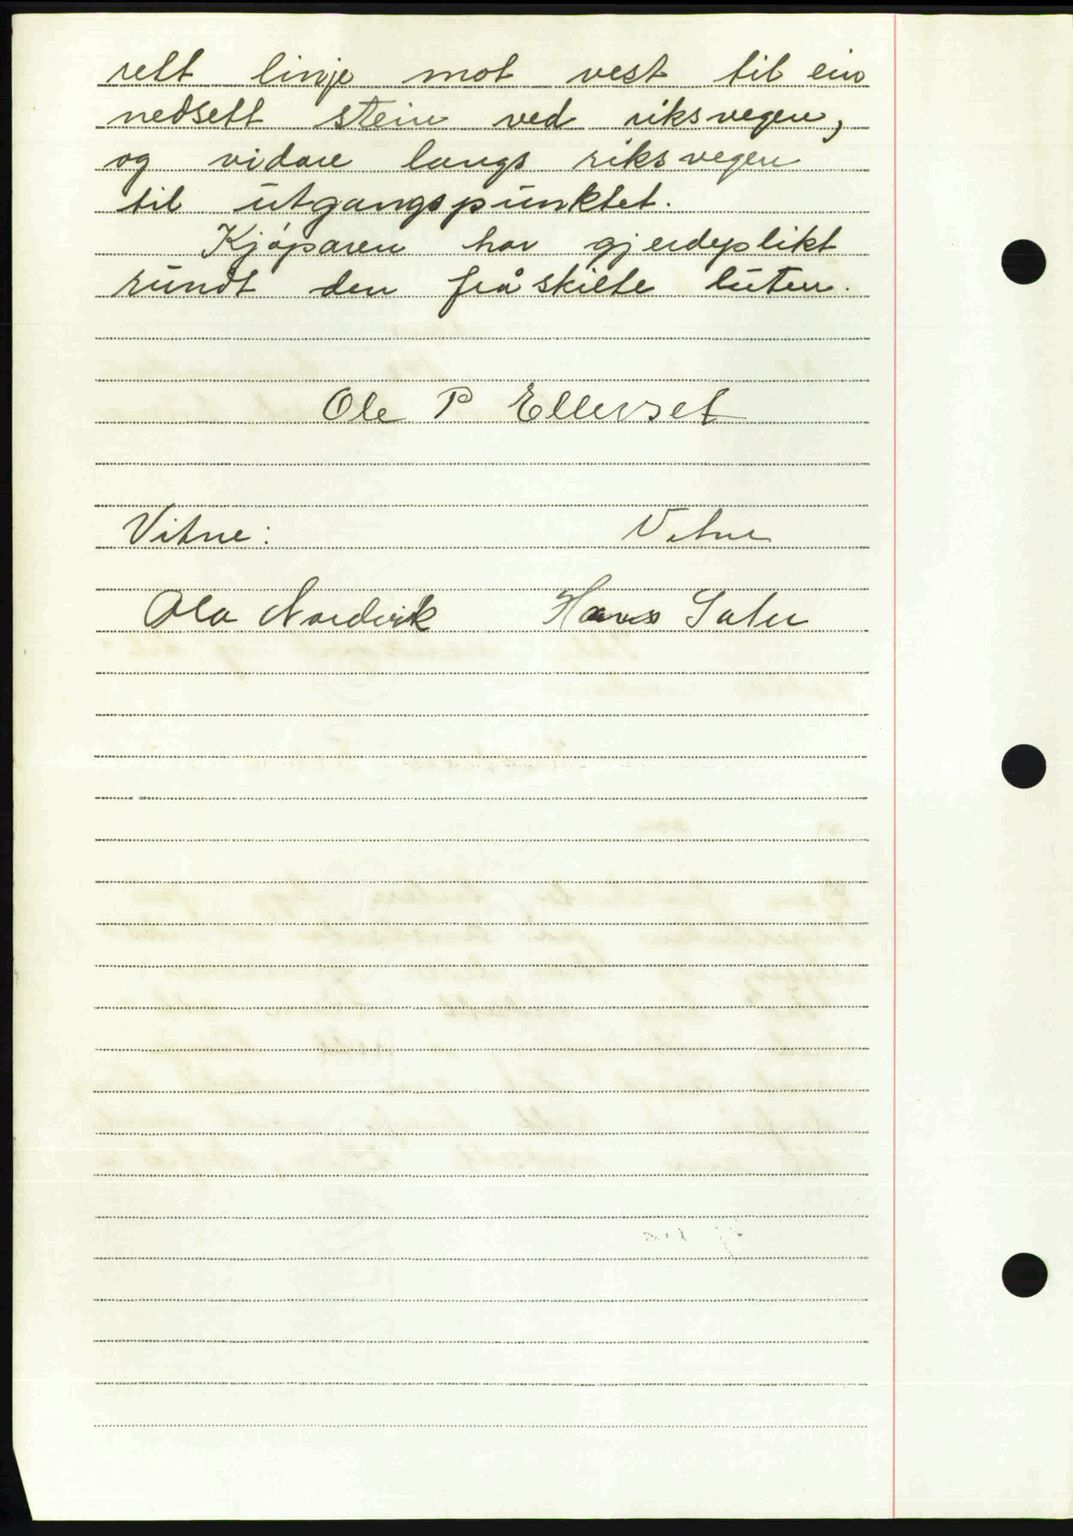 rett linje mot vest til ein
nedsett stein ved riksvegen,
og vidare langs riksvegen
til utgangspunktet.
Kjøparen har gjerdeplikt
rundt den fråskilte luten.
Ole P Ellevset
Vitne: Vitne
Ola Nordvik Hans Sater